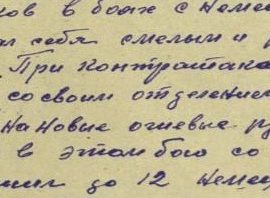 ков в боях с немец
ал себя смелым и р
При контратаке
со своим отделением
на новые огневые ру
в этом бою со
жил до 12 немец